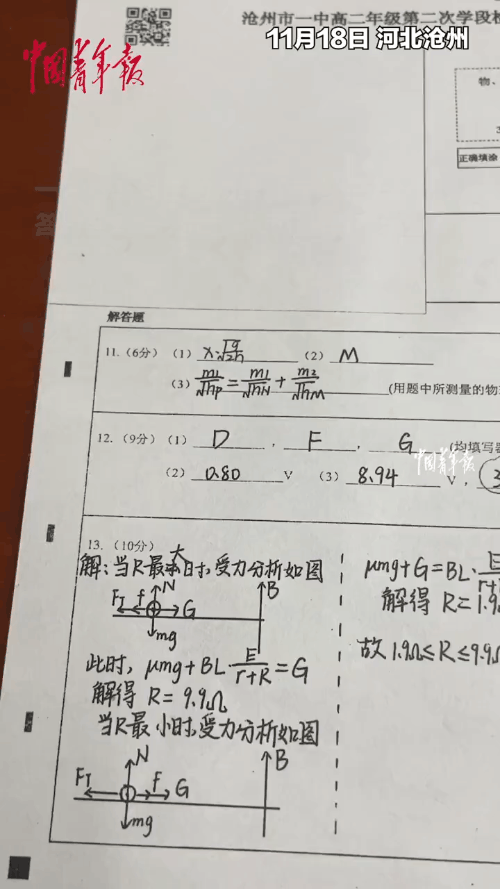 沧州市一中高二年级第二次学段
11月18日 河北沧州
中国青年报
物、
正确填涂
解答题
11.(6分) (1) x√(g/2h) (2) M
(3) m₁/√hP = m₁/√hN + m₂/√hM (用题中所测量的物
12.(9分) (1) D , F , G (均填写
中国青年报
(2) 0.80 V (3) 8.94 V,
13.(10分)
解:当R最大时,受力分析如图
N B
FT f G
mg
此时, μmg+BL·E/(r+R)=G
解得 R=9.9Ω
当R最小时,受力分析如图
N B
FT f G
mg
μmg+G=BL·
解得 R=1.9
故 1.9Ω≤R≤9.9Ω